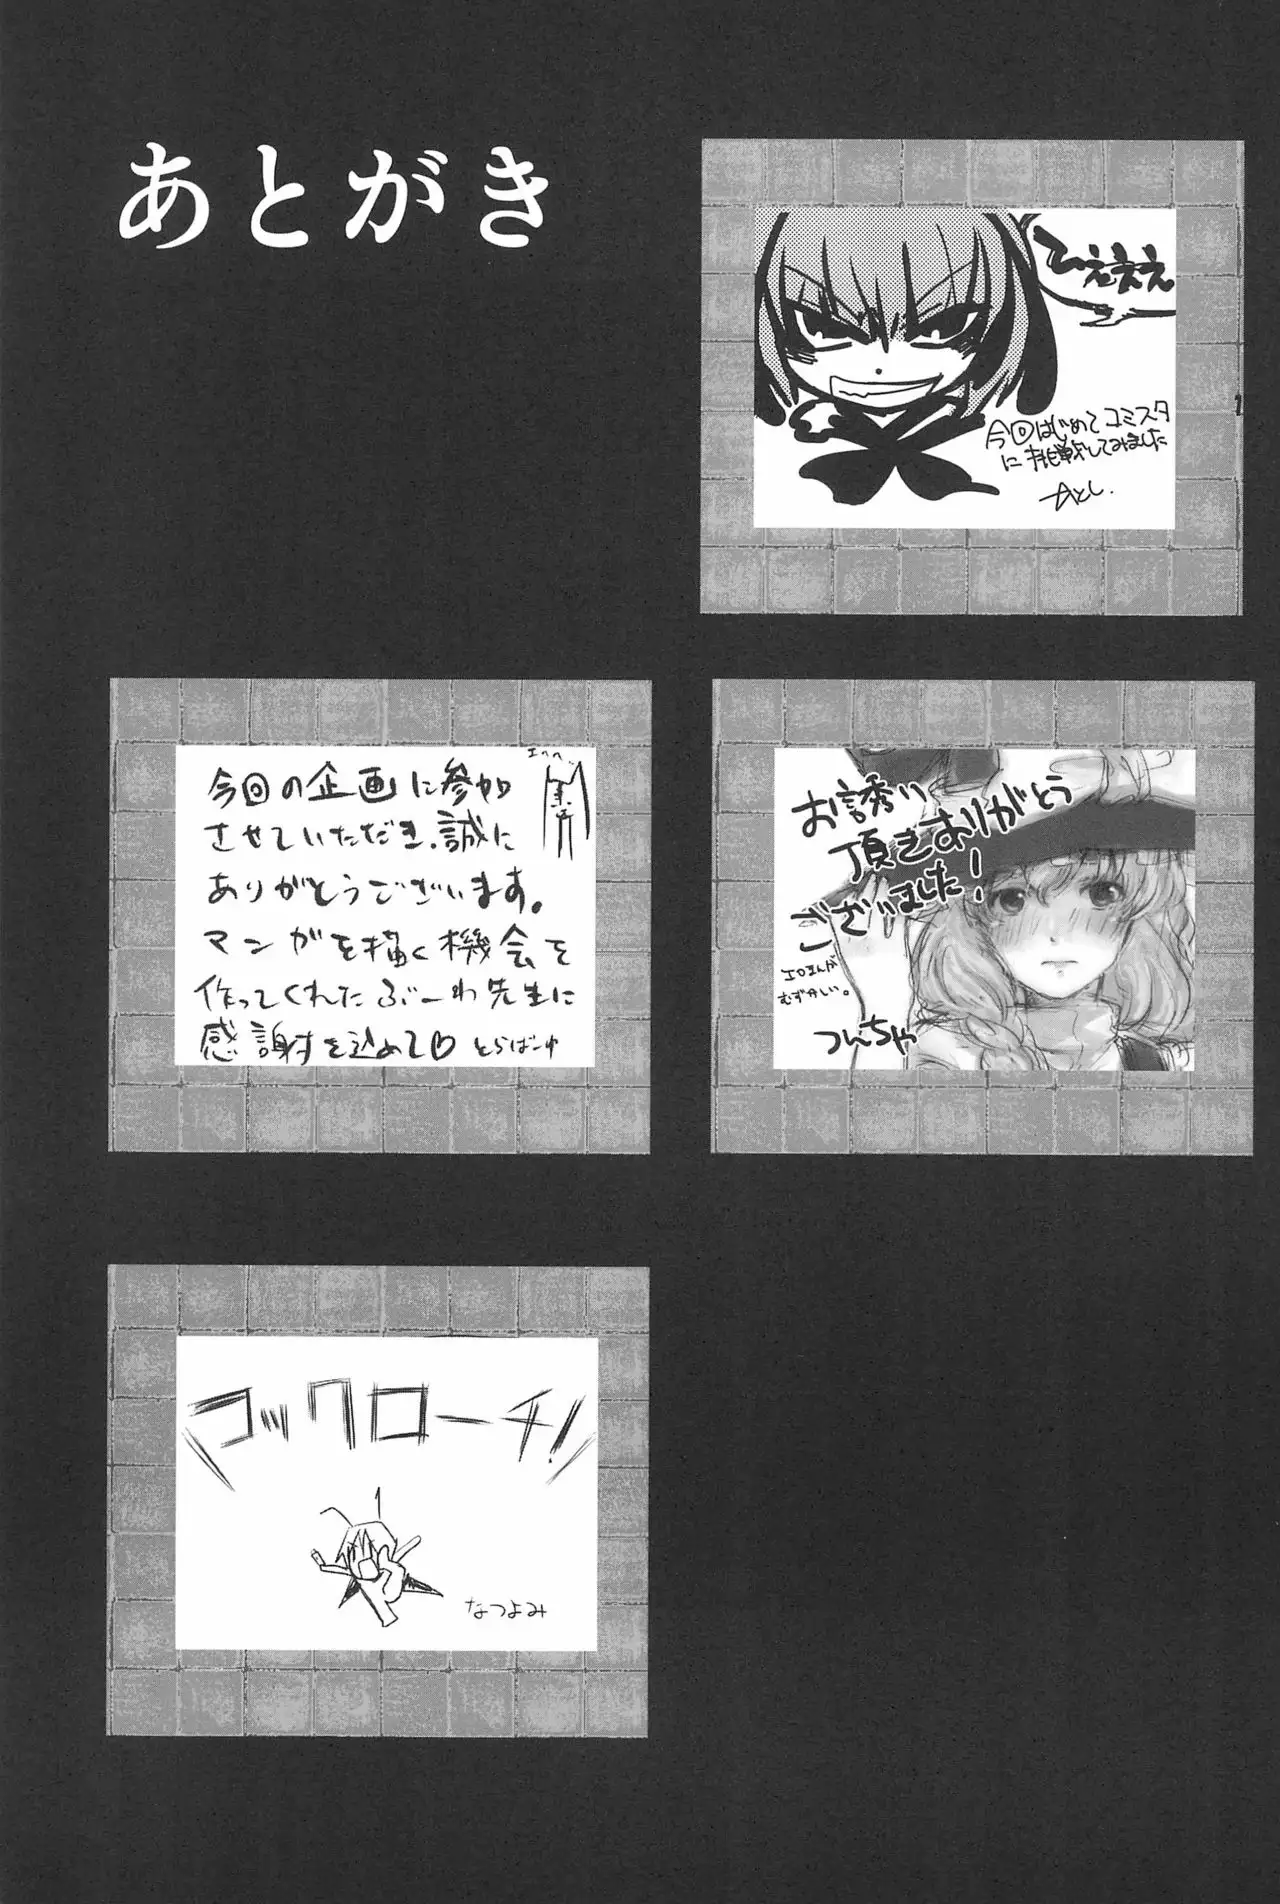 あとがき
ひぇぇぇ
今回はじめてコミスタ
に挑戦してみました
お誘い
頂きありがとう
ございました!
エロまんが
むずかしい。
つんちゃ
エヘヘ
今回の企画に参加
させていただき、誠に
ありがとうございます。
マンガを描く機会を
作ってくれたぶーわ先生に
感謝を込めて♡ とらばーゆ
コックローチ!
なつよみ